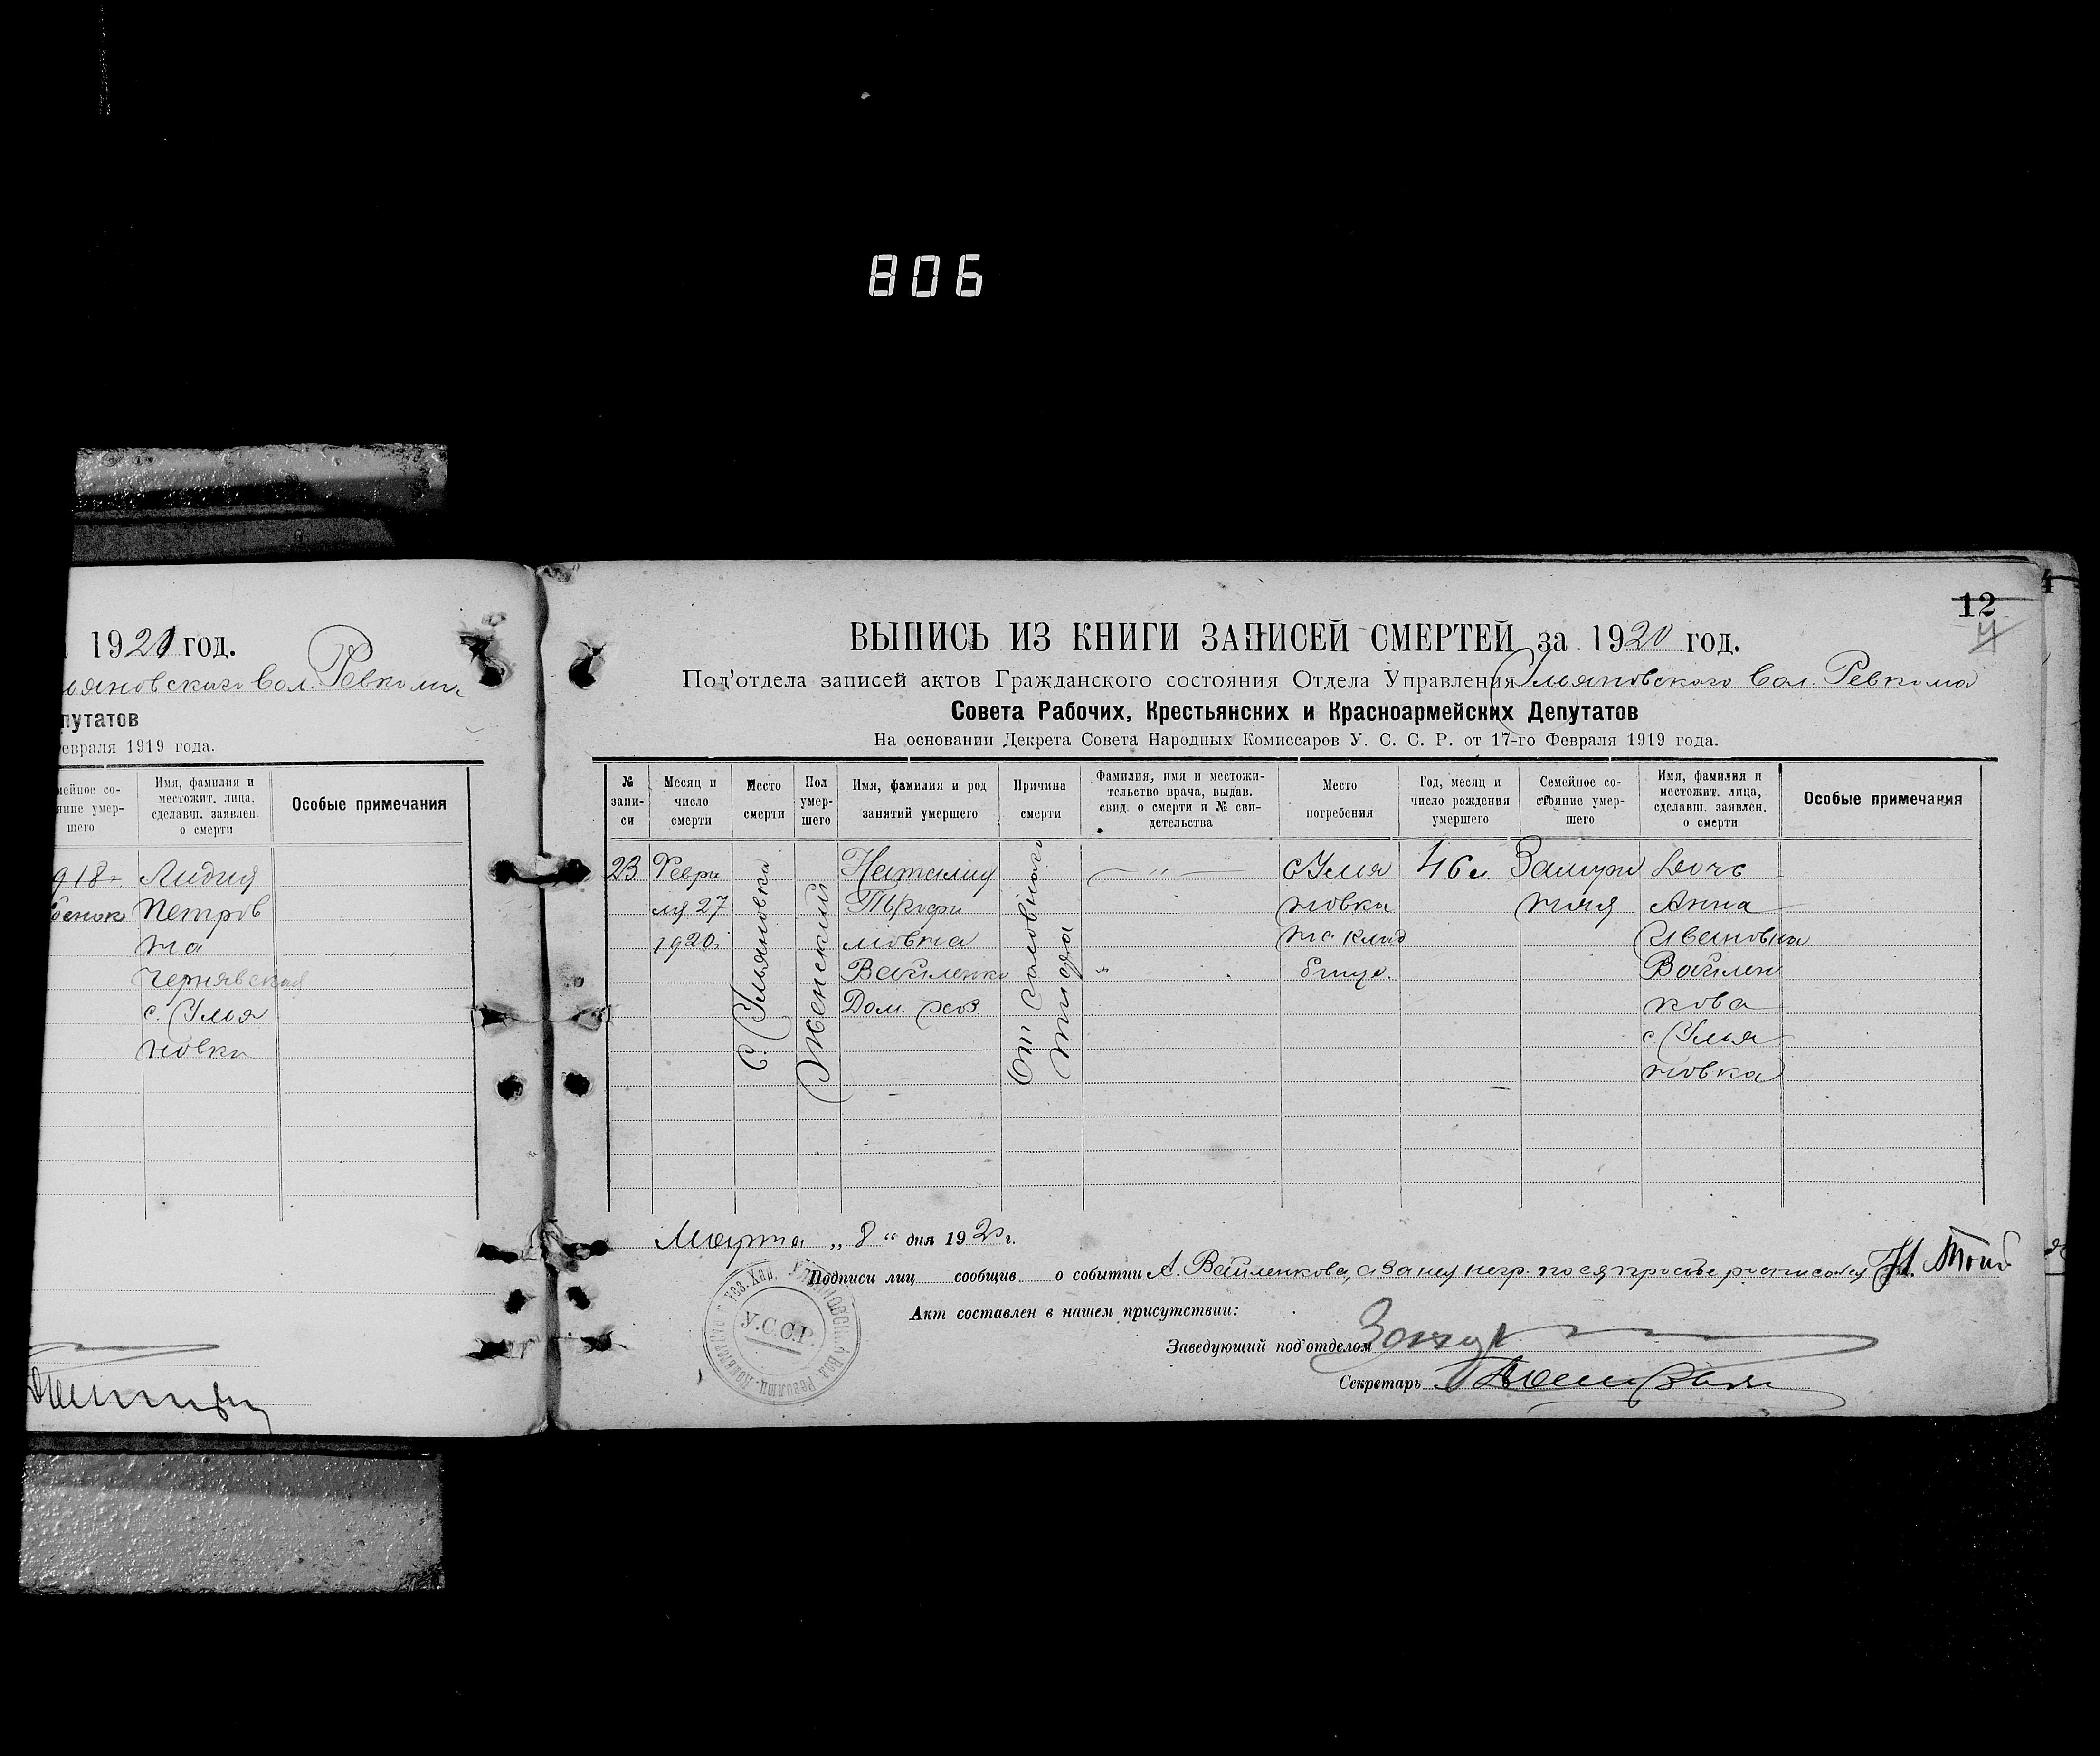 806
1920 год.
Ревкома
путатов
евраля 1919 года.
мейное со-
яние умер-
шего
Имя, фамилия и
местожит. лица,
сделавш. заявлен.
о смерти
Особые примечания
918 г.
Лидия
Петров
на
Чернявская
с. Улья
новки
4
12
ВЫПИСЬ ИЗ КНИГИ ЗАПИСЕЙ СМЕРТЕЙ за 1920 год.
Под'отдела записей актов Гражданского состояния Отдела Управления Ульяновского Вол. Ревкома
Совета Рабочих, Крестьянских и Красноармейских Депутатов
На основании Декрета Совета Народных Комиссаров У. С. С. Р. от 17-го Февраля 1919 года.
№
запи-
си
Месяц и
число
смерти
Место
смерти
Пол
умер-
шего
Имя, фамилия и род
занятий умершего
Причина
смерти
Фамилия, имя и местожи-
тельство врача, выдав.
свид. о смерти и № сви-
детельства
Место
погребения
Год, месяц и
число рождения
умершего
Семейное со-
стояние умер-
шего
Имя, фамилия и
местожит. лица,
сделавш. заявлен.
о смерти
Особые примечания
23
Февра
ля 27
1920 г.
с. Ульяновка
Женский
Наталия
Трофи
мовна
Вайленко
Дом. хоз.
От
тифа
— „ —
с Улья
новка
на клад
бище.
46 л.
Замуж
няя
Дочь
Анна
Ивановна
Вайлен
кова
с Улья
новка
Марта „ 8 “ дня 1920 г.
Подписи лиц сообщив о событии А. Вайленкова, а за нея негр. по ея просьбе расписался
У.С.С.Р.
Акт составлен в нашем присутствии:
Заведующий под'отделом
Секретарь